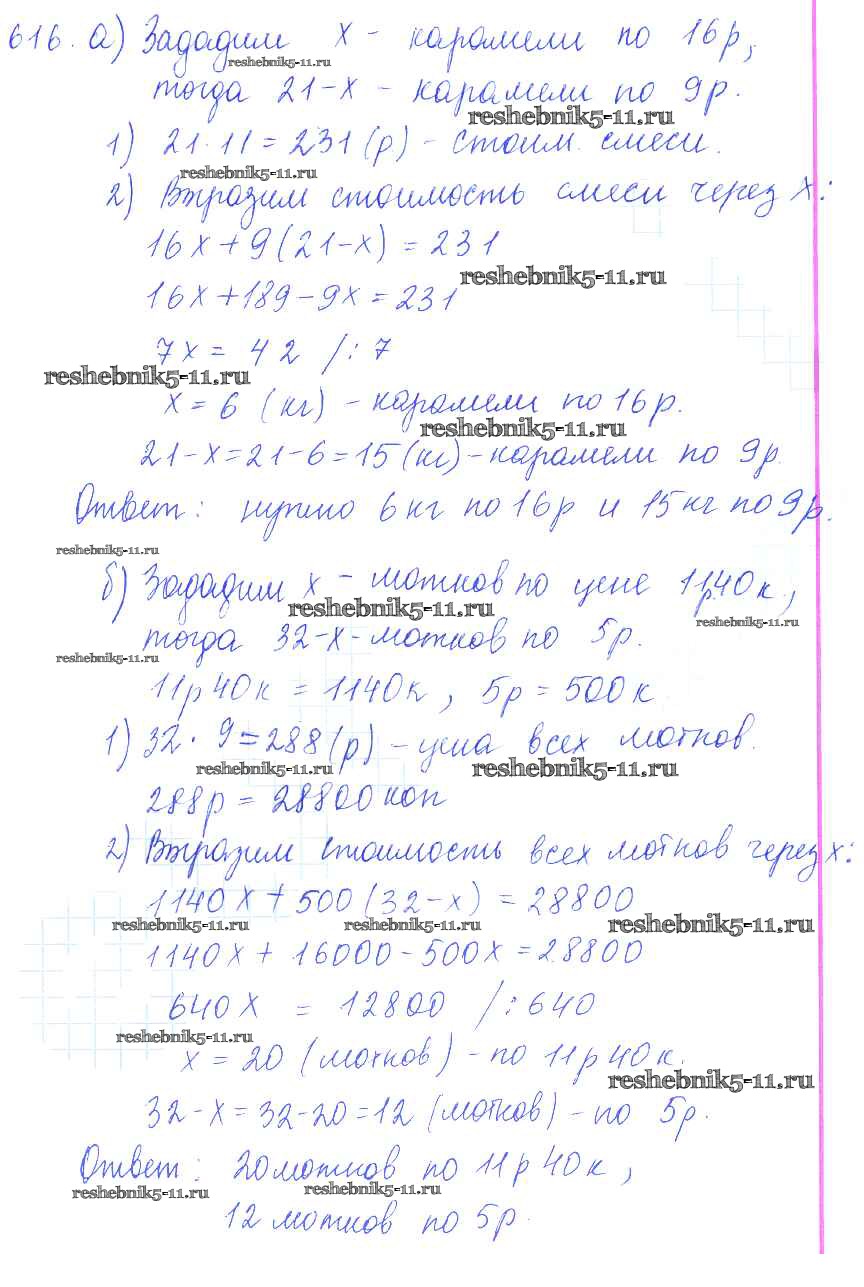 616. а) Зададим х - карамели по 16р,
reshebnik5-11.ru
тогда 21-х - карамели по 9р.
reshebnik5-11.ru
1) 21·11=231(р) - стоим. смеси.
reshebnik5-11.ru
2) Выразим стоимость смеси через х:
16х+9(21-х)=231
reshebnik5-11.ru
16х+189-9х=231
7х= 42 /:7
reshebnik5-11.ru
х=6 (кг) - карамели по 16р.
reshebnik5-11.ru
21-х=21-6=15(кг)-карамели по 9р.
Ответ: нужно 6кг по 16р и 15кг по 9р.
reshebnik5-11.ru
б) Зададим х - мотков по цене 11р40к,
reshebnik5-11.ru
reshebnik5-11.ru
тогда 32-х-мотков по 5р.
reshebnik5-11.ru
11р40к = 1140к, 5р=500к
1) 32·9=288(р)-цена всех мотков.
reshebnik5-11.ru reshebnik5-11.ru
288р=28800коп
2) Выразим стоимость всех мотков через х:
1140х+500(32-х)=28800
reshebnik5-11.ru reshebnik5-11.ru reshebnik5-11.ru
1140х+16000-500х=28800
640х = 12800 /:640
reshebnik5-11.ru
х=20 (мотков)-по 11р40к.
reshebnik5-11.ru
32-х=32-20=12 (мотков)-по 5р.
Ответ: 20мотков по 11р40к,
reshebnik5-11.ru reshebnik5-11.ru
12 мотков по 5р.